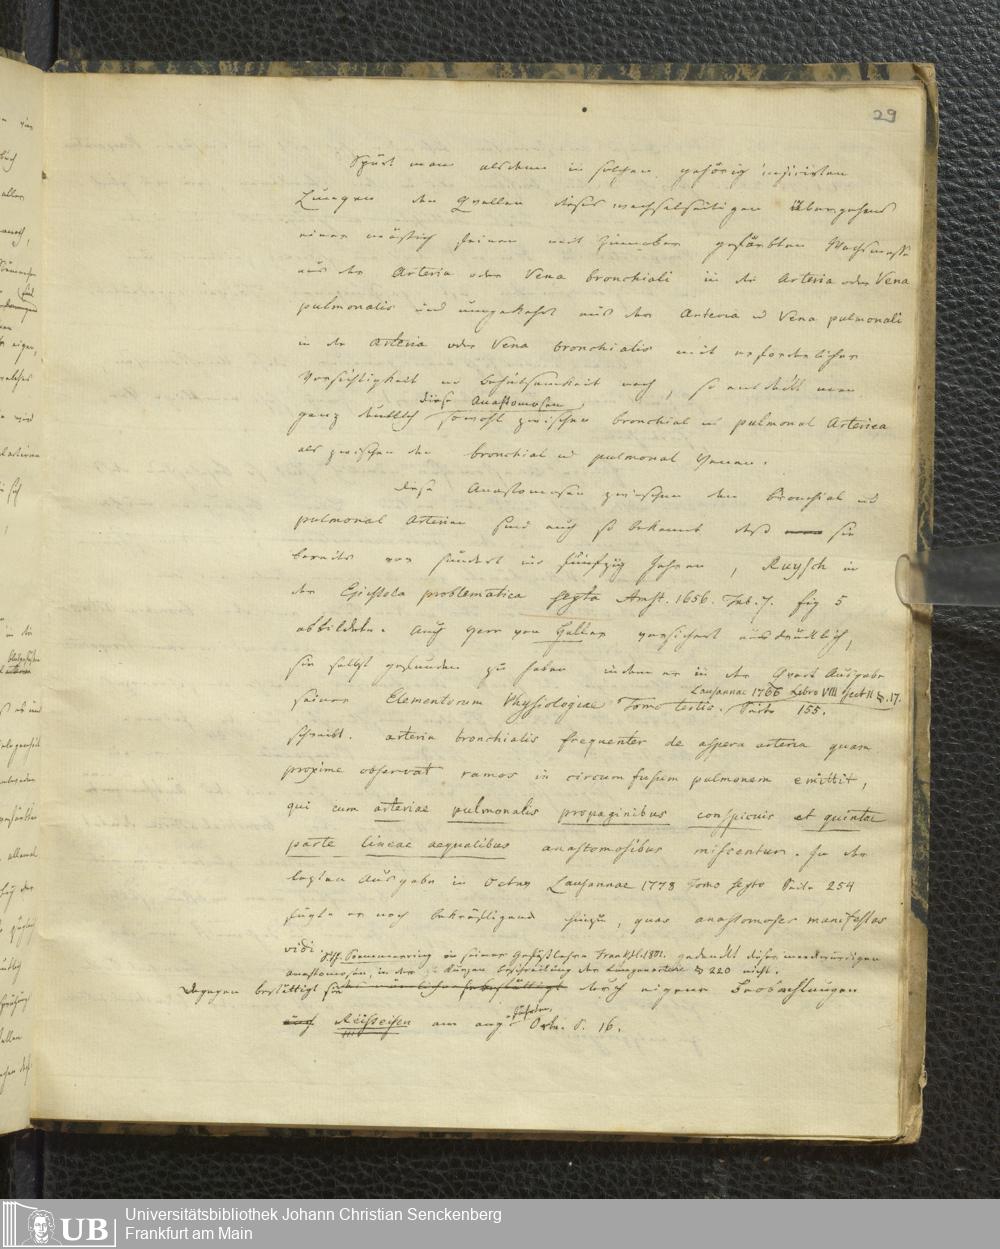 29
Spürt man alsdenn in solchen gehörig injicirten
Lungen den Quellen dieses wechselseitigen Übergehens
einer mäßig feinen mit Zinnober gefärbten Wachsmasse
aus der Arteria oder Vena bronchiali in die Arteria oder Vena
pulmonalis und umgekehrt aus der Arteria u Vena pulmonali
in die Arteria oder Vena bronchialis mit erforderlicher
Vorsichtigkeit u Behutsamkeit nach, so entdeckt man
diese Anastomosen
ganz deutlich sowohl zwischen bronchial u pulmonal Arterien
als zwischen den bronchial u pulmonal Venen.
Diese Anastomosen zwischen den bronchial und
pulmonal Arterien sind auch so bekannt daß sie
bereits vor hundert und fünfzig Jahren, Ruysch in
der Epistola problematica sexta Amst. 1656. Tab. 7. fig 5
abbildete. Auch Herr von Haller versichert ausdrücklich,
sie selbst gefunden zu haben indem er in der Quart Ausgabe
Lausannae 1766 Libro VIII Sect II §. 17.
seiner Elementorum Physiologiae Tomo tertio. Seite 155.
schreibt. arteria bronchialis frequenter de aspera arteria quam
proxime observat ramos in circum fusum pulmonem emittit,
qui cum arteriae pulmonalis propaginibus conspicuis et quintae
parte lineae aequalibus anastomosibus miscentur. In der
lezten Ausgabe in Octav Lausannae 1778 Tomo sexto Seite 254
fügte er noch bekräftigend hinzu, quas anastomoses manifestas
vidi. Soemmerring in seiner Gefäßlehre Frankf. 1801. gedenkt dieser merkwürdigen
anastomosen, in der kurzen Beschreibung der Lungenarterie § 220 nicht.
Dagegen bestättigt sie durch eigene Beobachtungen
auch Reisseisen am angeführten Orte. S. 16.
Universitätsbibliothek Johann Christian Senckenberg
Frankfurt am Main
UB